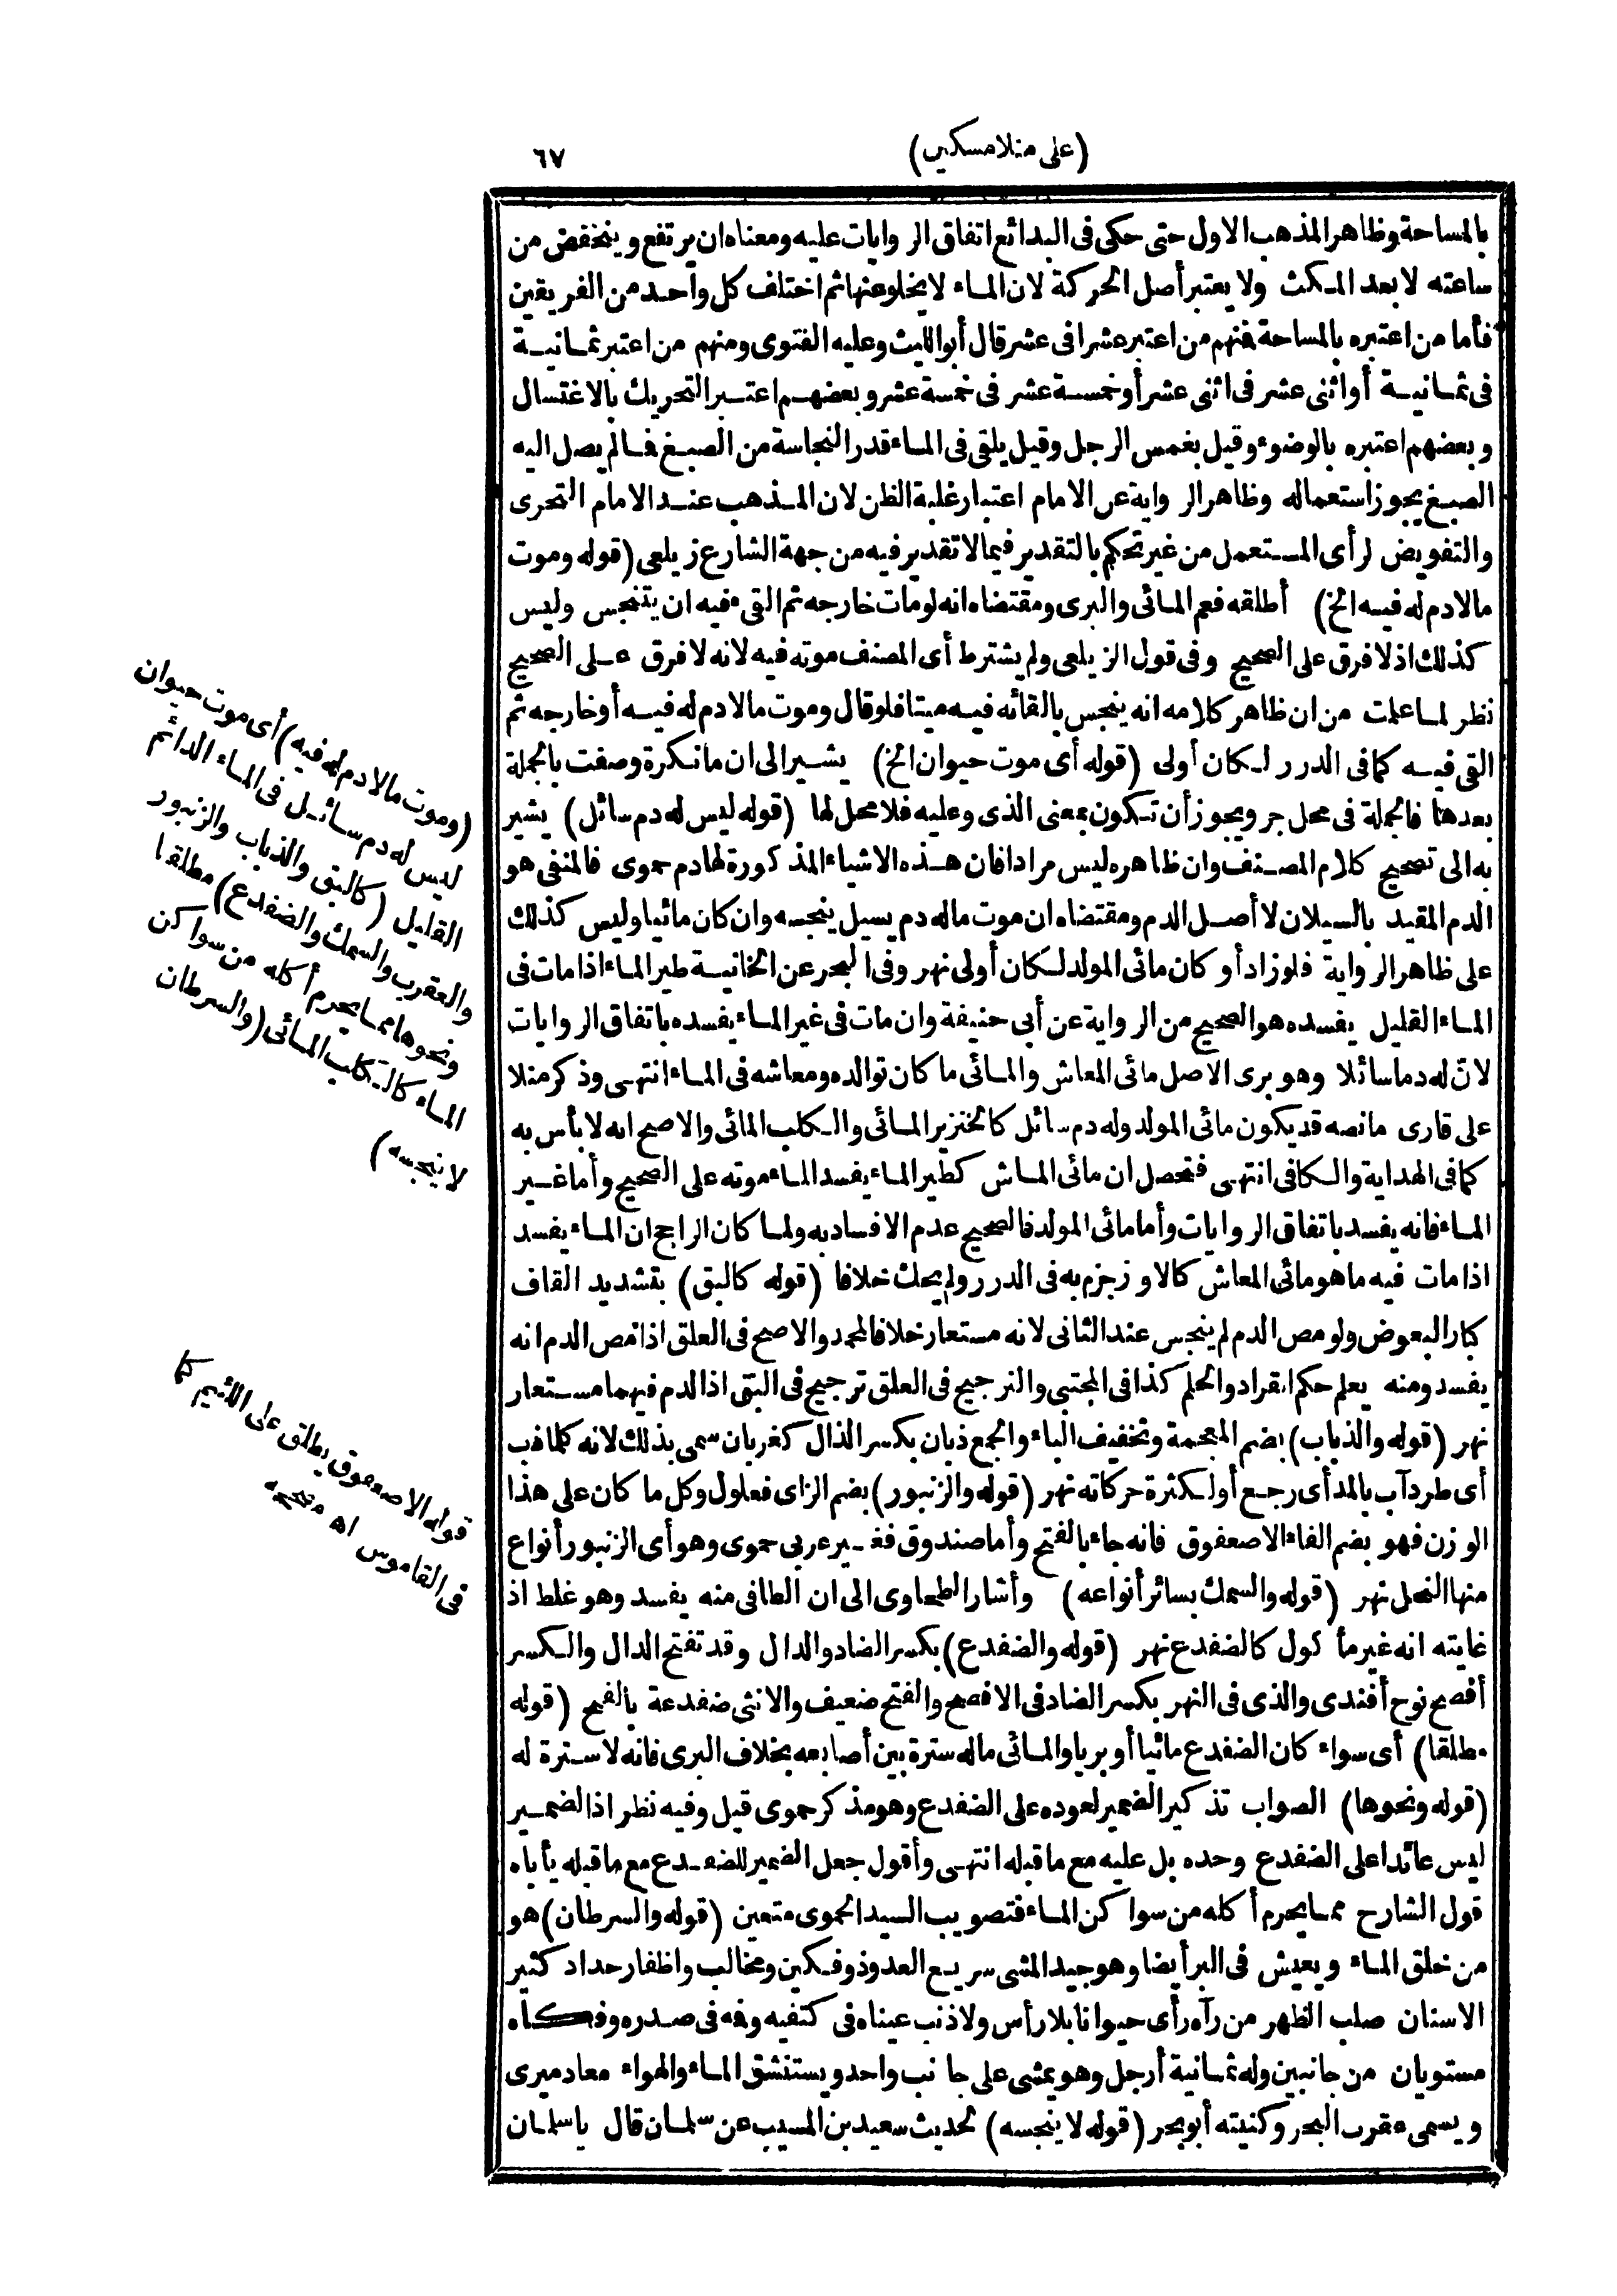 (على منلا مسكين)
٦٧
بالمساحة وظاهر المذهب الاول حتى حكى فى البدائع اتفاق الروايات عليه ومعناه ان يرتفع وينخفض من
ساعته لا بعد المكث ولا يعتبر أصل الحركة لان الماء لا يخلو عنها ثم اختلف كل واحد من الفريقين
فأما من اعتبره بالمساحة فمنهم من اعتبر عشرا فى عشر قال أبو الليث وعليه الفتوى ومنهم من اعتبر ثمانية
فى ثمانية أو اثنى عشر فى اثنى عشر أو خمسة عشر فى خمسة عشر وبعضهم اعتبر التحريك بالاغتسال
وبعضهم اعتبره بالوضوء وقيل بغمس الرجل وقيل يلقى فى الماء قدر النجاسة من الصبغ فما لم يصل اليه
الصبغ يجوز استعماله وظاهر الرواية عن الامام اعتبار غلبة الظن لان المذهب عند الامام التحرى
والتفويض لرأى المستعمل من غير تحكم بالتقدير فيما لا تقدير فيه من جهة الشارع زيلعى (قوله وموت
مالا دم له فيه الخ) أطلقه فعم المائى والبرى ومقتضاه انه لو مات خارجه ثم القىء فيه ان يتنجس وليس
كذلك اذ لا فرق على الصحيح وفى قول الزيلعى ولم يشترط أى المصنف موته فيه لانه لا فرق على الصحيح
نظر لما علمت من ان ظاهر كلامه انه ينجس بالقائه فيه ميتا فلو قال وموت مالا دم له فيه أو خارجه ثم
القى فيه كما فى الدرر لكان أولى (قوله أى موت حيوان الخ) يشير الى ان ما نكرة وصفت بالجملة
بعدها فالجملة فى محل جر ويجوز أن تكون بمعنى الذى وعليه فلا محل لها (قوله ليس له دم سائل) يشير
به الى تصحيح كلام المصنف وان ظاهره ليس مرادا فان هذه الاشياء المذكورة لها دم حموى فالمنفى هو
الدم المقيد بالسيلان لا أصل الدم ومقتضاه ان موت ماله دم يسيل ينجسه وان كان مائيا وليس كذلك
على ظاهر الرواية فلو زاد أو كان مائى المولد لكان أولى نهر وفى البحر عن الخانية طير الماء اذا مات فى
الماء القليل يفسده هو الصحيح من الرواية عن أبى حنيفة وان مات فى غير الماء يفسده باتفاق الروايات
لان له دما سائلا وهو برى الاصل مائى المعاش والمائى ما كان توالده ومعاشه فى الماء انتهى وذكر منلا
على قارى ما نصه قد يكون مائى المولد وله دم سائل كالخنزير المائى والكلب المائى والاصح انه لا بأس به
كما فى الهداية والكافى انتهى فتحصل ان مائى المعاش كطير الماء يفسد الماء موته على الصحيح وأما غير
الماء فانه يفسد باتفاق الروايات وأما مائى المولد فالصحيح عدم الافساد به ولما كان الراجح ان الماء يفسد
اذا مات فيه ما هو مائى المعاش كالاوز جزم به فى الدرر ولم يحك خلافا (قوله كالبق) بتشديد القاف
كبار البعوض ولو مص الدم لم ينجس عند الثانى لانه مستعار خلافا لمحمد والاصح فى العلق اذا مص الدم انه
يفسد ومنه يعلم حكم القراد والحلم كذا فى المجتبى والترجيح فى العلق ترجيح فى البق اذ الدم فيهما مستعار
نهر (قوله والذباب) بضم المعجمة وتخفيف الباء والجمع ذبان بكسر الذال كغربان سمى بذلك لانه كلما ذب
أى طرد آب بالمد أى رجع أو لكثرة حركاته نهر (قوله والزنبور) بضم الزاى فعلول وكل ما كان على هذا
الوزن فهو بضم الفاء الا صعفوق فانه جاء بالفتح وأما صندوق فغير عربى حموى وهو أى الزنبور أنواع
منها النحل نهر (قوله والسمك بسائر أنواعه) وأشار الطحاوى الى ان الطافى منه يفسد وهو غلط اذ
غايته انه غير مأكول كالضفدع نهر (قوله والضفدع) بكسر الضاد والدال وقد تفتح الدال والكسر
أفصح نوح أفندى والذى فى النهر بكسر الضاد فى الافصح والفتح ضعيف والانثى ضفدعة بالفتح (قوله
مطلقا) أى سواء كان الضفدع مائيا أو بريا والمائى ماله سترة بين أصابعه بخلاف البرى فانه لا سترة له
(قوله ونحوها) الصواب تذكير الضمير لعوده على الضفدع وهو مذكر حموى قيل وفيه نظر اذ الضمير
ليس عائدا على الضفدع وحده بل عليه مع ما قبله انتهى وأقول جعل الضمير للضفدع مع ما قبله يأباه
قول الشارح مما يحرم أكله من سواكن الماء فتصويب السيد الحموى متعين (قوله والسرطان) هو
من خلق الماء ويعيش فى البر أيضا وهو جيد المشى سريع العدو ذو فكين ومخالب واظفار حداد كثير
الاسنان صلب الظهر من رآه رأى حيوانا بلا رأس ولا ذنب عيناه فى كتفيه وفه فى صدره وفكاه
مستويان من جانبين وله ثمانية أرجل وهو يمشى على جانب واحد ويستنشق الماء والهواء معا دميرى
ويسمى عقرب البحر وكنيته أبو بحر (قوله لا ينجسه) لحديث سعيد بن المسيب عن سلمان قال يا سلمان
(وموت مالا دم له فيه) أى موت حيوان
ليس له دم سائل فى الماء الدائم
القليل (كالبق والذباب والزنبور
والعقرب والسمك والضفدع) مطلقا
ونحوها مما يحرم أكله من سواكن
الماء كالكلب المائى (والسرطان
لا ينجسه)
قوله الا صعفوق يطلق على اللئيم كما
فى القاموس اه مصححه